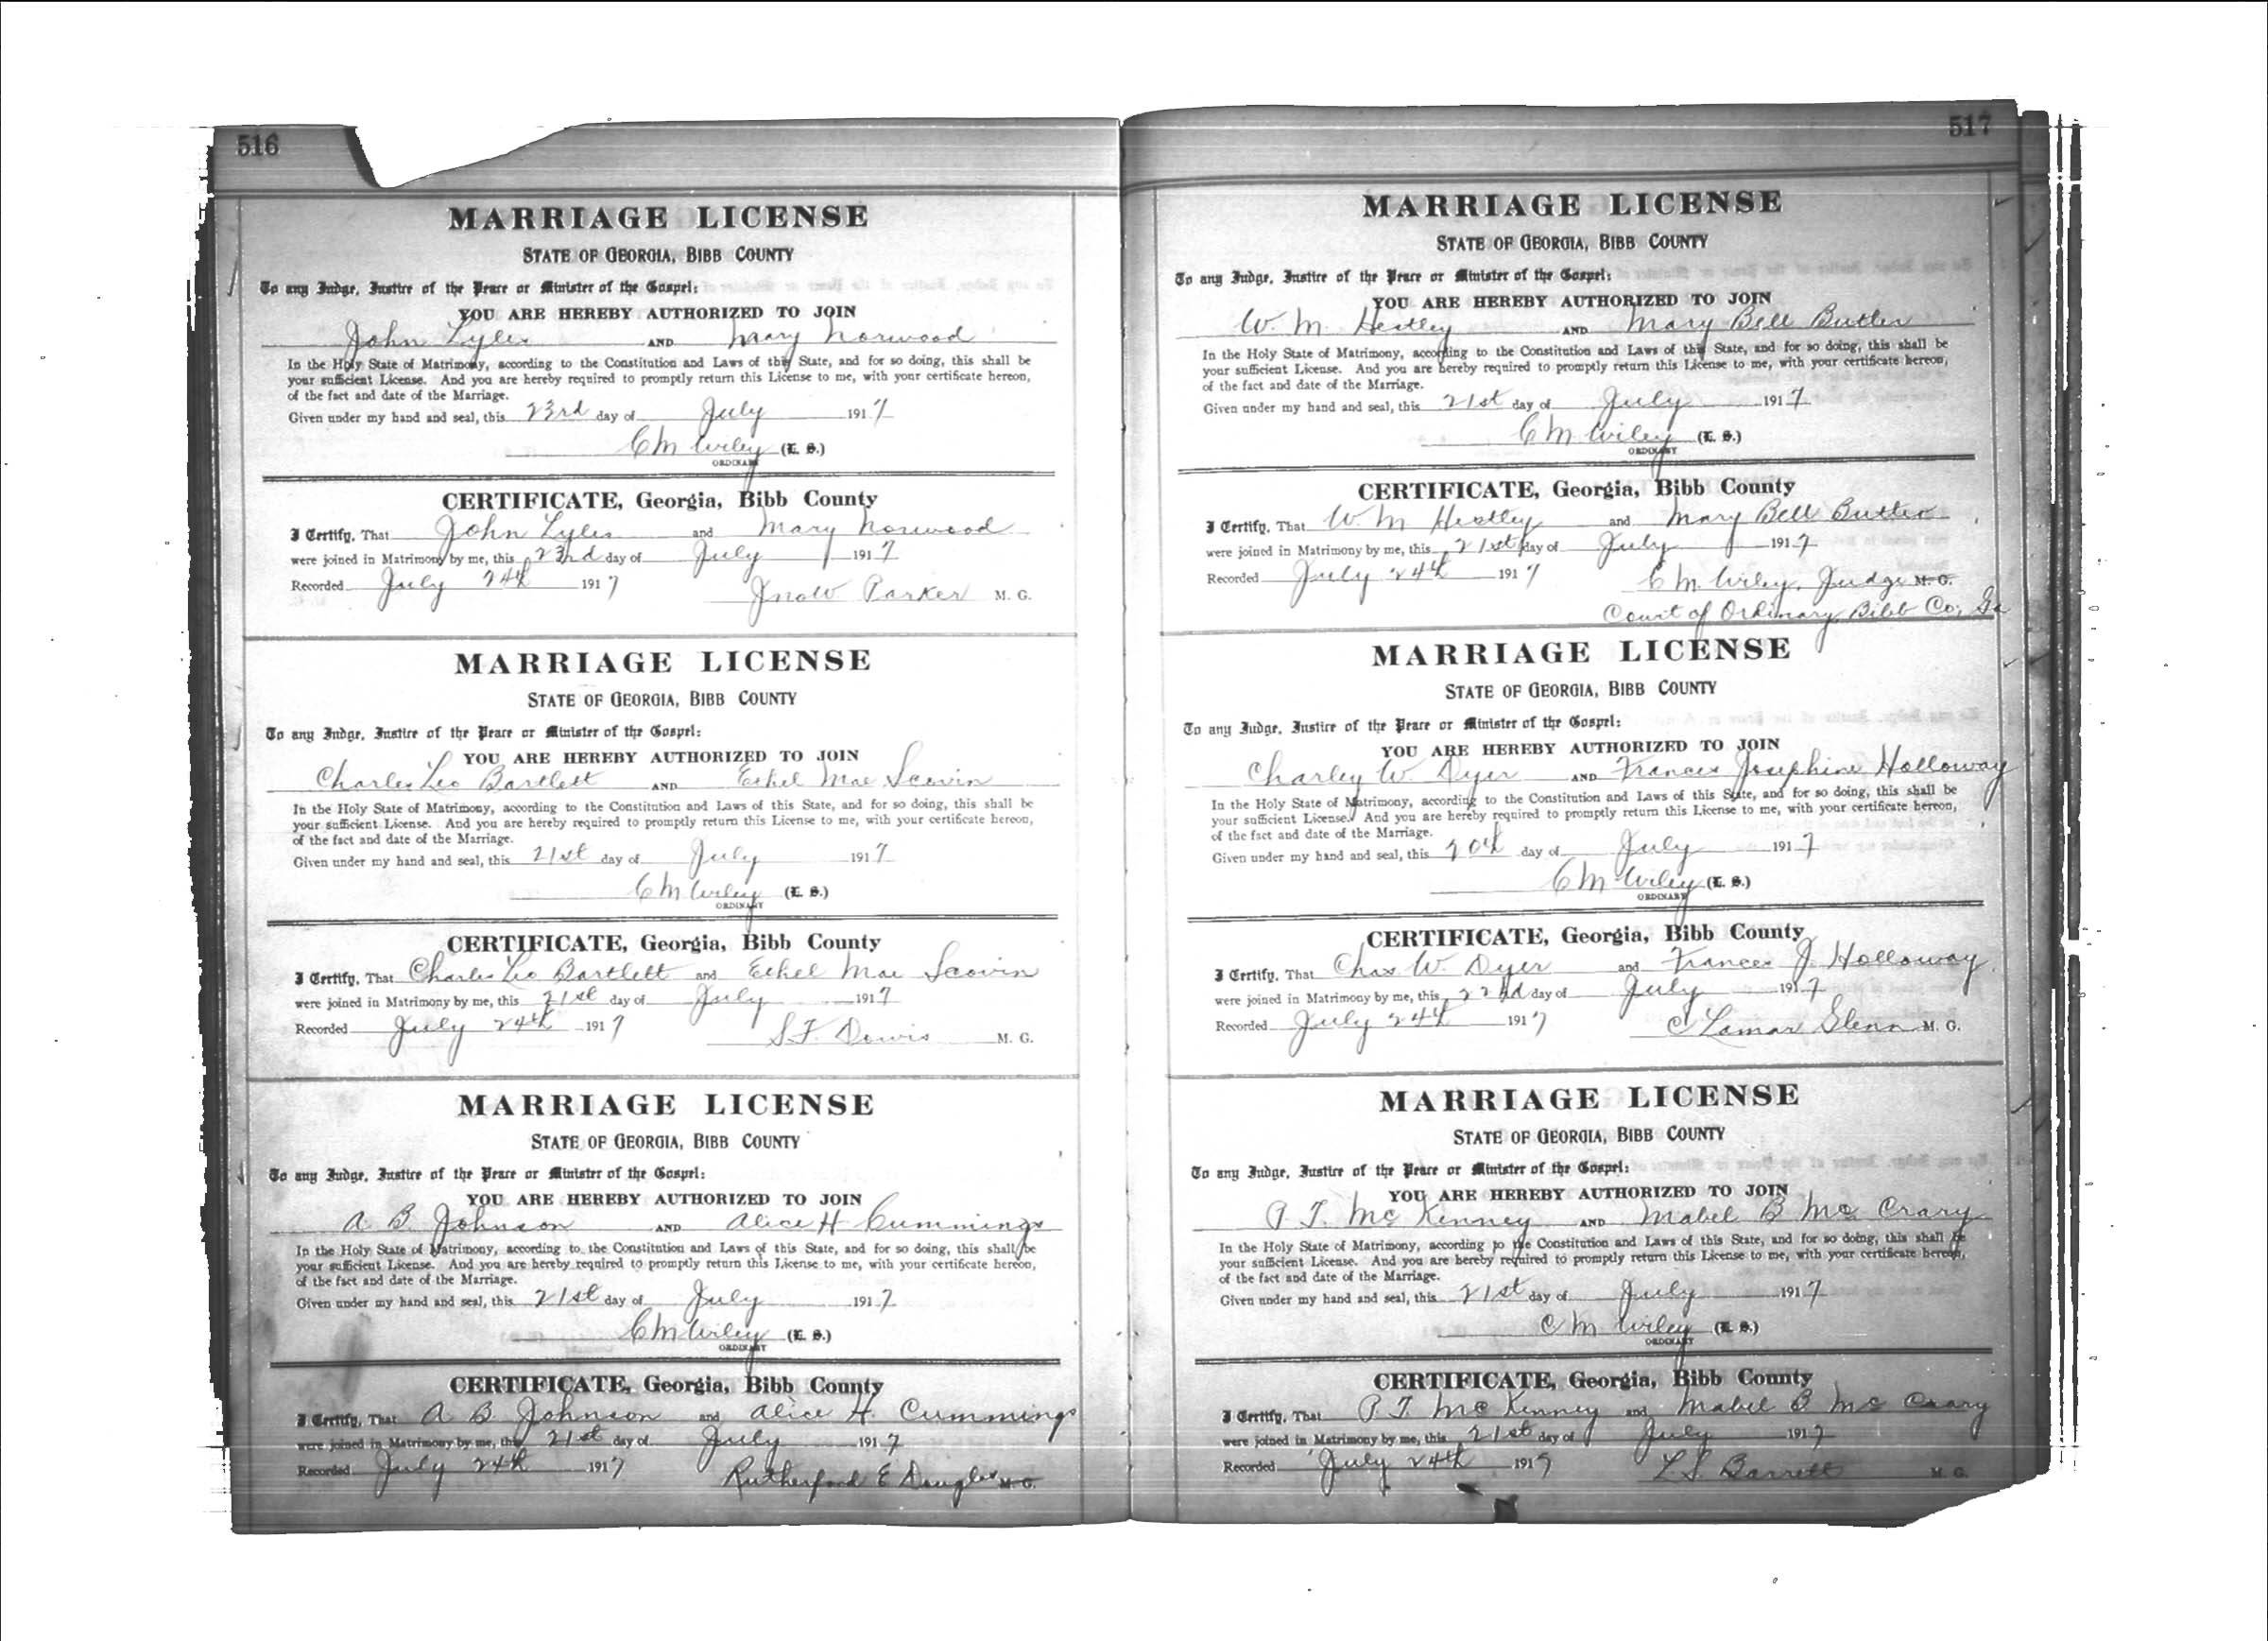 516
MARRIAGE LICENSE
STATE OF GEORGIA, BIBB COUNTY
To any Judge, Justice of the Peace or Minister of the Gospel:
YOU ARE HEREBY AUTHORIZED TO JOIN
John Lyles AND Mary Norwood
In the Holy State of Matrimony, according to the Constitution and Laws of this State, and for so doing, this shall be
your sufficient License. And you are hereby required to promptly return this License to me, with your certificate hereon,
of the fact and date of the Marriage.
Given under my hand and seal, this 23rd day of July 1917
C M Wiley (L. S.)
ORDINARY
CERTIFICATE, Georgia, Bibb County
I Certify, That John Lyles and Mary Norwood
were joined in Matrimony by me, this 23rd day of July 1917
Recorded July 24th 1917 Jno W Parker M. G.
MARRIAGE LICENSE
STATE OF GEORGIA, BIBB COUNTY
To any Judge, Justice of the Peace or Minister of the Gospel:
YOU ARE HEREBY AUTHORIZED TO JOIN
Charles Leo Bartlett AND Ethel Mae Scovin
In the Holy State of Matrimony, according to the Constitution and Laws of this State, and for so doing, this shall be
your sufficient License. And you are hereby required to promptly return this License to me, with your certificate hereon,
of the fact and date of the Marriage.
Given under my hand and seal, this 21st day of July 1917
C M Wiley (L. S.)
ORDINARY
CERTIFICATE, Georgia, Bibb County
I Certify, That Charles Leo Bartlett and Ethel Mae Scovin
were joined in Matrimony by me, this 21st day of July 1917
Recorded July 24th 1917 S F Dowis M. G.
MARRIAGE LICENSE
STATE OF GEORGIA, BIBB COUNTY
To any Judge, Justice of the Peace or Minister of the Gospel:
YOU ARE HEREBY AUTHORIZED TO JOIN
A B Johnson AND Alice H Cummings
In the Holy State of Matrimony, according to the Constitution and Laws of this State, and for so doing, this shall be
your sufficient License. And you are hereby required to promptly return this License to me, with your certificate hereon,
of the fact and date of the Marriage.
Given under my hand and seal, this 21st day of July 1917
C M Wiley (L. S.)
ORDINARY
CERTIFICATE, Georgia, Bibb County
I Certify, That A B Johnson and Alice H. Cummings
were joined in Matrimony by me, this 21st day of July 1917
Recorded July 24th 1917 Rutherford E Douglas M. G.
517
MARRIAGE LICENSE
STATE OF GEORGIA, BIBB COUNTY
To any Judge, Justice of the Peace or Minister of the Gospel:
YOU ARE HEREBY AUTHORIZED TO JOIN
W. M. Hestley AND Mary Bell Butler
In the Holy State of Matrimony, according to the Constitution and Laws of this State, and for so doing, this shall be
your sufficient License. And you are hereby required to promptly return this License to me, with your certificate hereon,
of the fact and date of the Marriage.
Given under my hand and seal, this 21st day of July 1917
C M Wiley (L. S.)
ORDINARY
CERTIFICATE, Georgia, Bibb County
I Certify, That W. M Hestley and Mary Bell Butler
were joined in Matrimony by me, this 21st day of July 1917
Recorded July 24th 1917 C M. Wiley, Judge M. G.
Court of Ordinary, Bibb Co; Ga
MARRIAGE LICENSE
STATE OF GEORGIA, BIBB COUNTY
To any Judge, Justice of the Peace or Minister of the Gospel:
YOU ARE HEREBY AUTHORIZED TO JOIN
Charley W Dyer AND Frances Josephine Holloway
In the Holy State of Matrimony, according to the Constitution and Laws of this State, and for so doing, this shall be
your sufficient License. And you are hereby required to promptly return this License to me, with your certificate hereon,
of the fact and date of the Marriage.
Given under my hand and seal, this 20th day of July 1917
C M Wiley (L. S.)
ORDINARY
CERTIFICATE, Georgia, Bibb County
I Certify, That Chas W. Dyer and Frances J. Holloway
were joined in Matrimony by me, this 22nd day of July 1917
Recorded July 24th 1917 C Lamar Glenn M. G.
MARRIAGE LICENSE
STATE OF GEORGIA, BIBB COUNTY
To any Judge, Justice of the Peace or Minister of the Gospel:
YOU ARE HEREBY AUTHORIZED TO JOIN
P T. McKenney AND Mabel B McCrary
In the Holy State of Matrimony, according to the Constitution and Laws of this State, and for so doing, this shall be
your sufficient License. And you are hereby required to promptly return this License to me, with your certificate hereon,
of the fact and date of the Marriage.
Given under my hand and seal, this 21st day of July 1917
C M Wiley (L. S.)
ORDINARY
CERTIFICATE, Georgia, Bibb County
I Certify, That P T. McKenney and Mabel B McCrary
were joined in Matrimony by me, this 21st day of July 1917
Recorded July 24th 1917 L S. Barrett M. G.